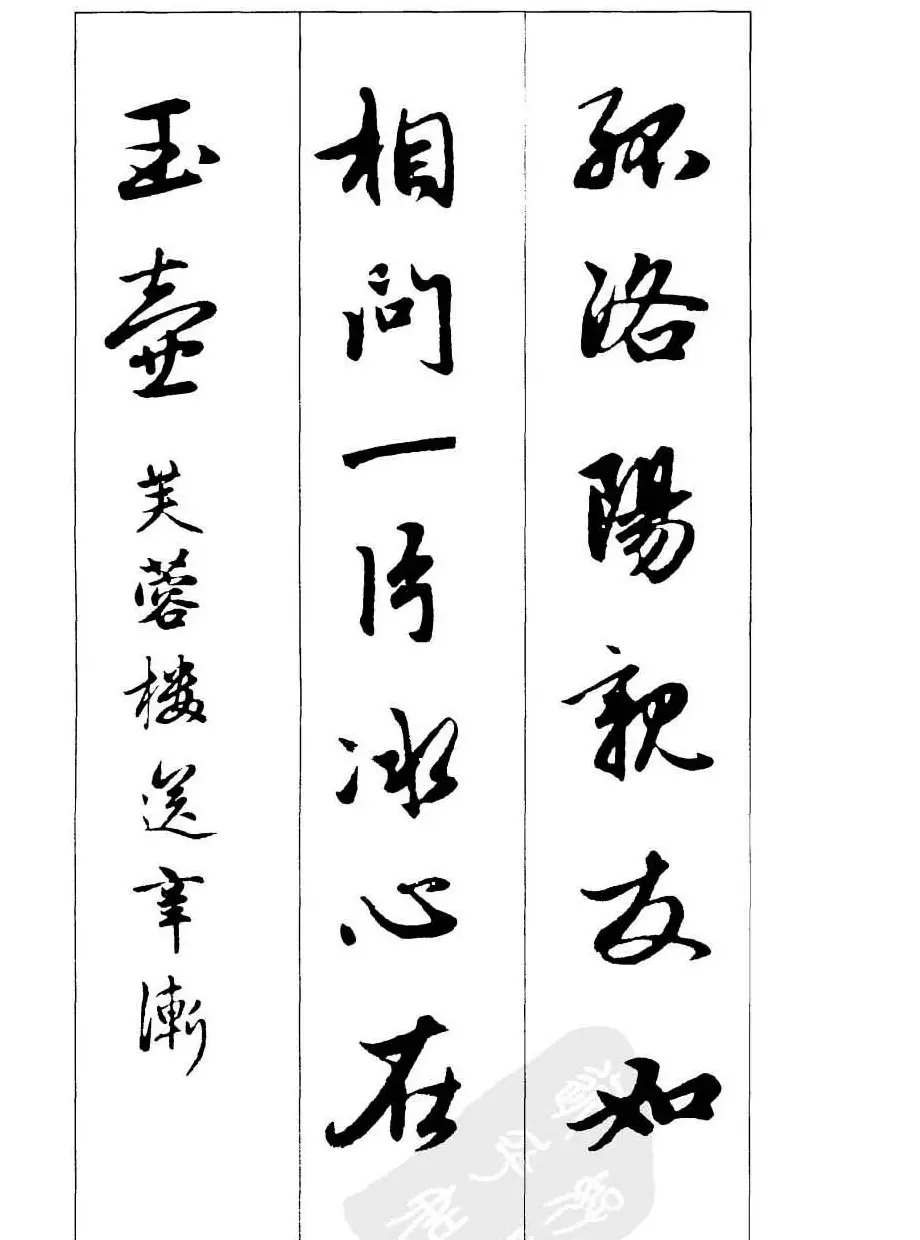 孤洛陽親友如
相问一片冰心在
玉壺 芙蓉楼送辛漸